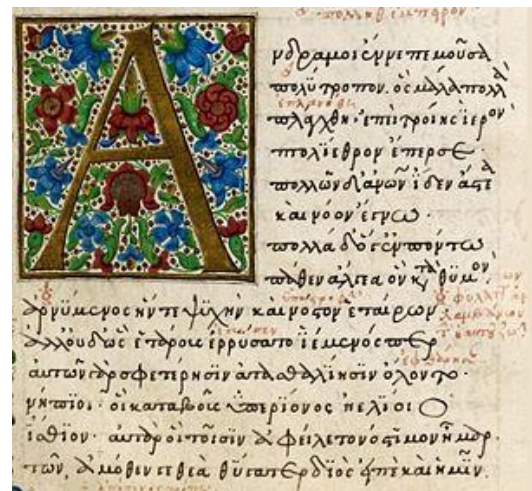 Α
νδρα μοι ἔννεπε μοῦσα
πολύτροπον. ὃς μάλα πολλὰ
πλάγχθη· ἐπεὶ τροίης ἱερὸν
πτολίεθρον ἔπερσε·
πολλῶν δ' ἀνων ἴδεν ἄστεα
καὶ νόον ἔγνω·
πολλὰ δ' ὅγ' ἐν πόντω
πάθεν ἄλγεα ὃν κατὰ θυμόν·
ἀρνύμενος ἥν τε ψυχὴν καὶ νόστον ἑταίρων
ἀλλ' οὐδ' ὣς ἑτάρους ἐρρύσατο ἱέμενός περ
αὐτῶν γὰρ σφετέρησιν ἀτασθαλίησιν ὄλοντο·
νήπιοι· οἳ κατὰ βοῦς ὑπερίονος ἠελίοιο
ἤσθιον· αὐτὰρ ὁ τοῖσιν ἀφείλετο νόστιμον ἦμαρ·
τῶν, ἁμόθεν γε θεὰ θύγατερ διὸς εἰπὲ καὶ ἡμῖν.